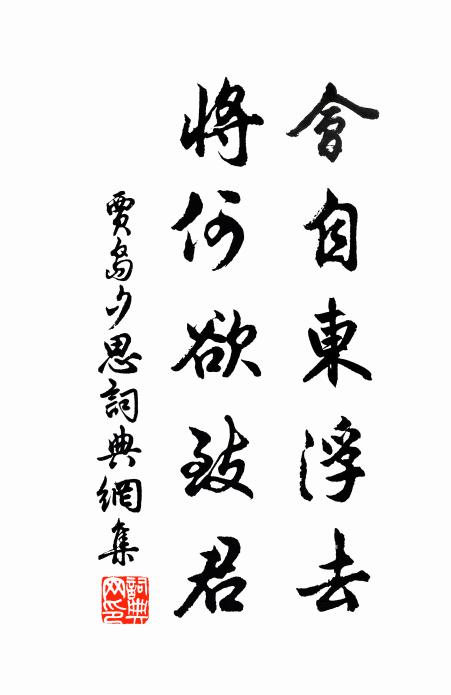 會自東浮去
將何欲致君
賈島夕思詞典網集
詞典